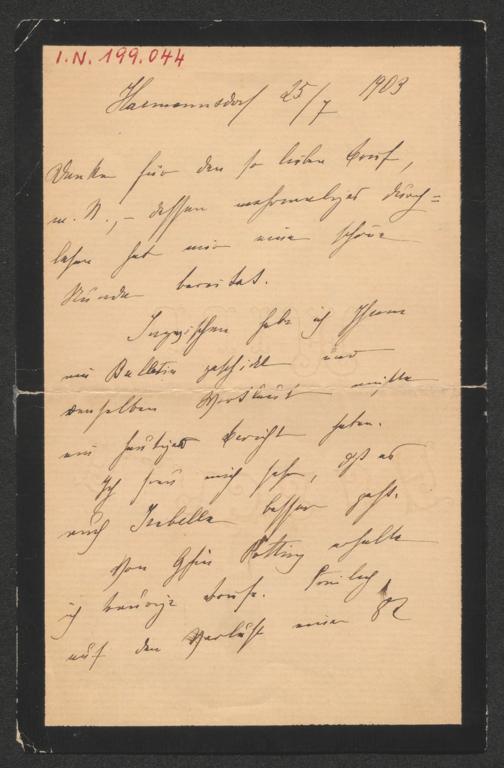 I.N. 199.044
Harmannsdorf 25/7 1903
Danke für den so lieben Brief,
m. A., – dessen mehrmaliges Durch=
lesen hat mir eine schöne
Stunde bereitet.
Inzwischen habe ich Ihnen
ein Bulletin geschickt und
denselben Wortlaut müßte
ein heutiger Bericht haben.
Ich freue mich sehr, daß es
auch Isabella besser geht.
Von Gfin Pötting erhalte
ich traurige Briefe. Freilich
auf den Verlust einer 82